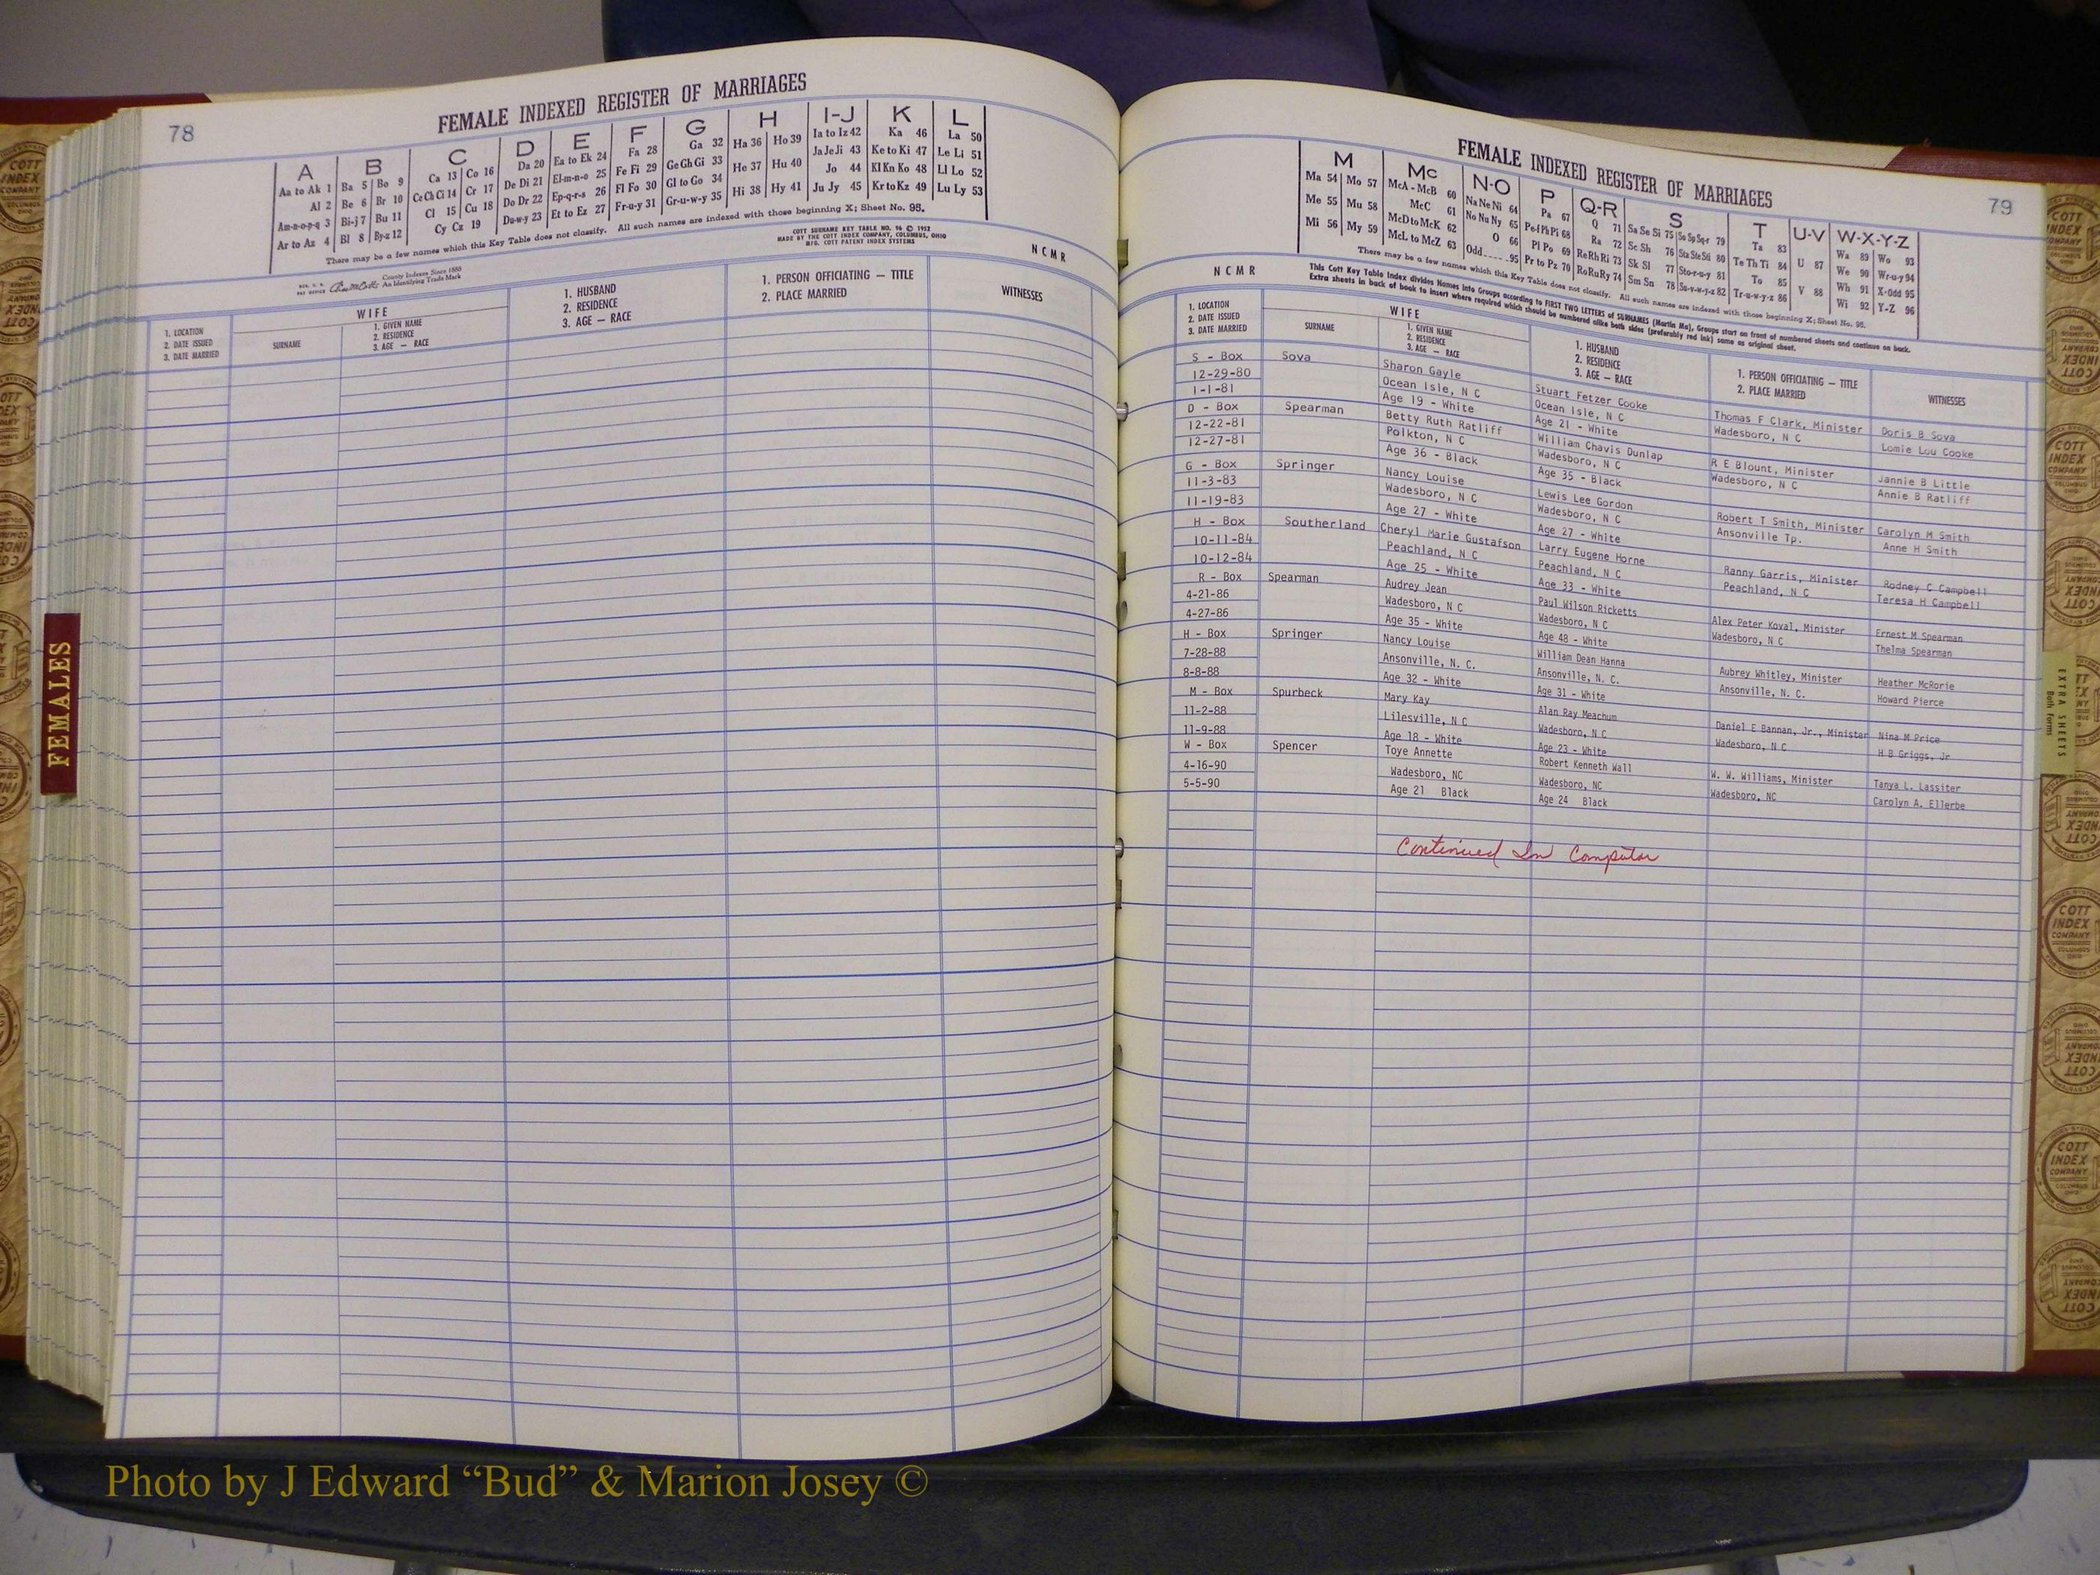 78
FEMALE INDEXED REGISTER OF MARRIAGES
A B C D E F G H I-J K L
Aa to Ak 1 Ba 5 Bo 9 Ca 13 Co 16 Da 20 Ea to Ek 24 Fa 28 Ga 32 Ha 36 Ho 39 Ia to Iz 42 Ka 46 La 50
Al 2 Be 6 Br 10 Ce Ch Ci 14 Cr 17 De Di 21 El-m-n-o 25 Fe Fi 29 Ge Gh Gi 33 He 37 Hu 40 Ja Je Ji 43 Ke to Ki 47 Le Li 51
Am-n-o-p-q 3 Bi-j 7 Bu 11 Cl 15 Cu 18 Do Dr 22 Ep-q-r-s 26 Fl Fo 30 Gl to Go 34 Hi 38 Hy 41 Jo 44 Kl Kn Ko 48 Ll Lo 52
Ar to Az 4 Bl 8 By-z 12 Cy Cz 19 Du-w-y 23 Et to Ez 27 Fr-u-y 31 Gr-u-w-y 35 Ju Jy 45 Kr to Kz 49 Lu Ly 53
There may be a few names which this Key Table does not classify. All such names are indexed with those beginning X; Sheet No. 95.
COTT SURNAME KEY TABLE NO. 96 © 1952
MADE BY THE COTT INDEX COMPANY, COLUMBUS, OHIO
MFG. COTT PATENT INDEX SYSTEMS
County Indexes Since 1888
An Identifying Trade Mark
N C M R
1. LOCATION
2. DATE ISSUED
3. DATE MARRIED
WIFE
SURNAME
1. GIVEN NAME
2. RESIDENCE
3. AGE — RACE
1. HUSBAND
2. RESIDENCE
3. AGE — RACE
1. PERSON OFFICIATING — TITLE
2. PLACE MARRIED
WITNESSES
FEMALES
FEMALE INDEXED REGISTER OF MARRIAGES
79
M Mc N-O P Q-R S T U-V W-X-Y-Z
Ma 54 Mo 57 McA - McB 60 Na Ne Ni 64 Pa 67 Q 71 Sa Se Si 75 So Sp Sq-r 79 Ta 83 U 87 Wa 89 Wo 93
Me 55 Mu 58 McC 61 No Nu Ny 65 Pe-f Ph Pi 68 Ra 72 Sc Sh 76 Sta Ste Sti 80 Te Th Ti 84 V 88 We 90 Wr-u-y 94
Mi 56 My 59 McD to McK 62 O 66 Pl Po 69 Re Rh Ri 73 Sk Sl 77 Sto-r-u-y 81 To 85 Wh 91 X-Odd 95
McL to McZ 63 Odd 95 Pr to Pz 70 Ro Ru Ry 74 Sm Sn 78 Su-v-w-y-z 82 Tr-u-w-y-z 86 Wi 92 Y-Z 96
There may be a few names which this Key Table does not classify. All such names are indexed with those beginning X; Sheet No. 95.
N C M R
This Cott Key Table Index divides Names into Groups according to FIRST TWO LETTERS of SURNAMES (Martin Ma), Groups start on front of numbered sheets and continue on back.
Extra sheets in back of book to insert where required which should be numbered alike both sides (preferably red ink) same as original sheet.
1. LOCATION
2. DATE ISSUED
3. DATE MARRIED
WIFE
SURNAME
1. GIVEN NAME
2. RESIDENCE
3. AGE — RACE
1. HUSBAND
2. RESIDENCE
3. AGE — RACE
1. PERSON OFFICIATING — TITLE
2. PLACE MARRIED
WITNESSES
S - Box Sova Sharon Gayle Stuart Fetzer Cooke Thomas F Clark, Minister Doris B Sova
12-29-80 Ocean Isle, N C Ocean Isle, N C Wadesboro, N C Lomie Lou Cooke
1-1-81 Age 19 - White Age 21 - White
D - Box Spearman Betty Ruth Ratliff William Chavis Dunlap R E Blount, Minister Jannie B Little
12-22-81 Polkton, N C Wadesboro, N C Wadesboro, N C Annie B Ratliff
12-27-81 Age 36 - Black Age 35 - Black
G - Box Springer Nancy Louise Lewis Lee Gordon Robert T Smith, Minister Carolyn M Smith
11-3-83 Wadesboro, N C Wadesboro, N C Ansonville Tp. Anne H Smith
11-19-83 Age 27 - White Age 27 - White
H - Box Southerland Cheryl Marie Gustafson Larry Eugene Horne Ranny Garris, Minister Rodney C Campbell
10-11-84 Peachland, N C Peachland, N C Peachland, N C Teresa H Campbell
10-12-84 Age 25 - White Age 33 - White
R - Box Spearman Audrey Jean Paul Wilson Ricketts Alex Peter Koval, Minister Ernest M Spearman
4-21-86 Wadesboro, N C Wadesboro, N C Wadesboro, N C Thelma Spearman
4-27-86 Age 35 - White Age 48 - White
H - Box Springer Nancy Louise William Dean Hanna Aubrey Whitley, Minister Heather McRorie
7-28-88 Ansonville, N. C. Ansonville, N. C. Ansonville, N. C. Howard Pierce
8-8-88 Age 32 - White Age 31 - White
M - Box Spurbeck Mary Kay Alan Ray Meachum Daniel E Bannan, Jr., Minister Nina M Price
11-2-88 Lilesville, N C Wadesboro, N C Wadesboro, N C H B Griggs, Jr
11-9-88 Age 18 - White Age 23 - White
W - Box Spencer Toye Annette Robert Kenneth Wall W. W. Williams, Minister Tanya L. Lassiter
4-16-90 Wadesboro, NC Wadesboro, NC Wadesboro, NC Carolyn A. Ellerbe
5-5-90 Age 21 Black Age 24 Black
Continued In Computer
EXTRA SHEETS
Both Forms
COTT
INDEX
COMPANY
COLUMBUS
OHIO
Photo by J Edward “Bud” & Marion Josey ©